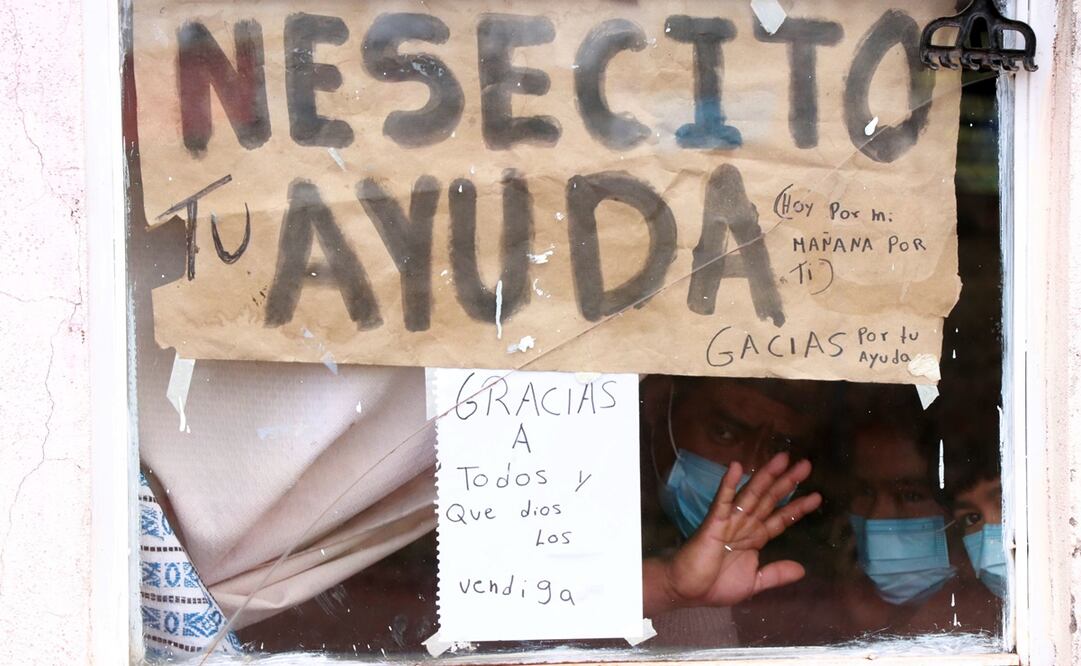 NESECITO
TU AYUDA
(Hoy Por mi
MAÑANA POR
Ti)
GACIAS Por tu
Ayuda
GRACIAS
A
Todos y
Que dios
Los
vendiga